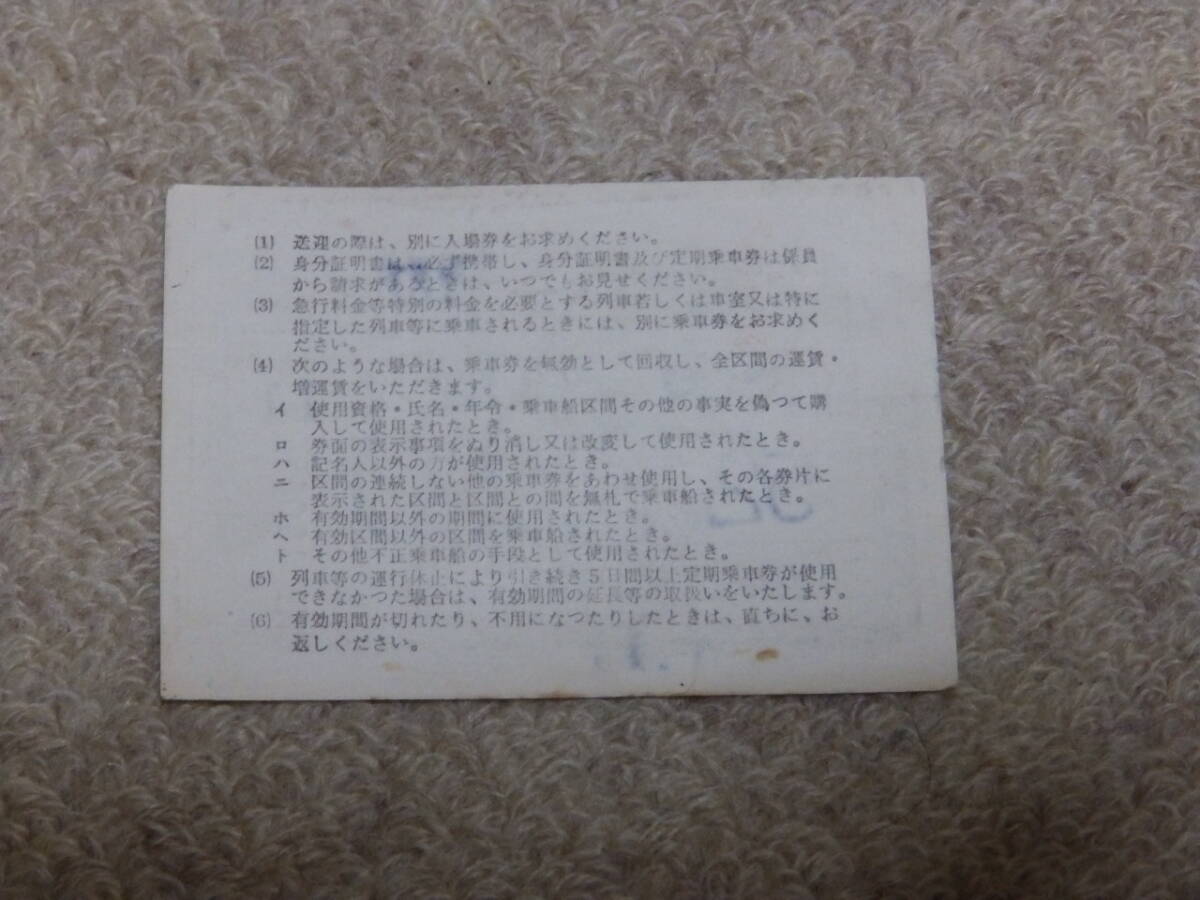 (1) 送迎の際は、別に入場券をお求めください。
(2) 身分証明書は、必ず携帯し、身分証明書及び定期乗車券は係員
から請求があるときは、いつでもお見せください。
(3) 急行料金等特別の料金を必要とする列車若しくは車室又は特に
指定した列車等に乗車されるときには、別に乗車券をお求めく
ださい。
(4) 次のような場合は、乗車券を無効として回収し、全区間の運賃・
増運賃をいただきます。
イ 使用資格・氏名・年令・乗車船区間その他の事実を偽つて購
入して使用されたとき。
ロ 券面の表示事項をぬり消し又は改変して使用されたとき。
ハ 記名人以外の方が使用されたとき。
ニ 区間の連続しない他の乗車券をあわせ使用し、その各券片に
表示された区間と区間との間を無札で乗車船されたとき。
ホ 有効期間以外の期間に使用されたとき。
ヘ 有効区間以外の区間を乗車船されたとき。
ト その他不正乗車船の手段として使用されたとき。
(5) 列車等の運行休止により引き続き5日間以上定期乗車券が使用
できなかつた場合は、有効期間の延長等の取扱いをいたします。
(6) 有効期間が切れたり、不用になつたりしたときは、直ちに、お
返しください。